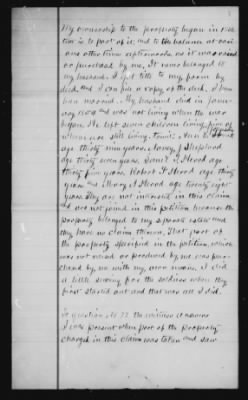 My ownership to the property began in
tion is to part of it; and to the balance at vari
ous other times afterwards, as it was raised
or purchased by me. It never belonged to
my husband. I got title to my farm by
deed, and I can file a copy of the deed. I
My husband died in
and was not living when the war
began. He left seven children living, five of
whom are still living, to wit:
age thirty nine years, Nancy J
age thirty seven years, Daniel I. Stroud age
thirty five years, Robert F. Stroud age thirty
years and Mary A. Stroud age twenty eight
years. They are not interested in this claim
and are not joined in this petition because the
property belonged to my separate estate and
they have no claim thereon. That part of
the property specified in the petition, which
was not raised or produced by me, was pur
chased by me with my own means. I did
a little sewing for the soldiers when they
first started out and that was all I did.
To question No 72, the witness answers
I was present when part of the property
charged in this claim was taken and saw